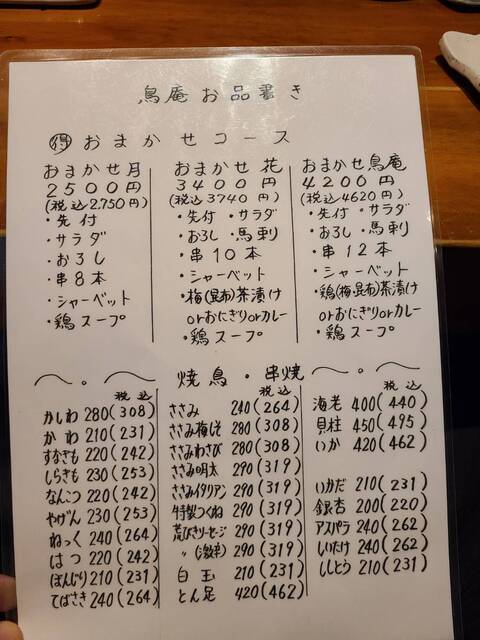 鳥庵お品書き
得 おまかせコース
おまかせ月
2500円
(税込2,750円)
・先付
・サラダ
・おろし
・串8本
・シャーベット
・鶏スープ
おまかせ 花
3400円
(税込3740円)
・先付 ・サラダ
・おろし ・馬刺
・串10本
・シャーベット
・梅(昆布)茶漬け
orおにぎりorカレー
・鶏スープ
おまかせ鳥庵
4200円
(税込4620円)
・先付 ・サラダ
・おろし ・馬刺
・串12本
・シャーベット
・鶏(梅・昆布)茶漬け
orおにぎりorカレー
・鶏スープ
焼鳥・串焼
税込
かしわ 280(308)
かわ 210(231)
すなぎも 220(242)
しらきも 230(253)
なんこつ 220(242)
やげん 230(253)
ねっく 240(264)
はつ 220(242)
ぼんじり 210(231)
てばさき 240(264)
税込
ささみ 240(264)
ささみ梅しそ 280(308)
ささみわさび 280(308)
ささみ明太 290(319)
ささみイタリアン 290(319)
特製つくね 290(319)
荒びきソーセージ 290(319)
〃(激辛) 290(319)
白玉 210(231)
とん足 420(462)
税込
海老 400(440)
貝柱 450(495)
いか 420(462)
いかだ 210(231)
銀杏 200(220)
アスパラ 240(262)
しいたけ 240(262)
ししとう 210(231)